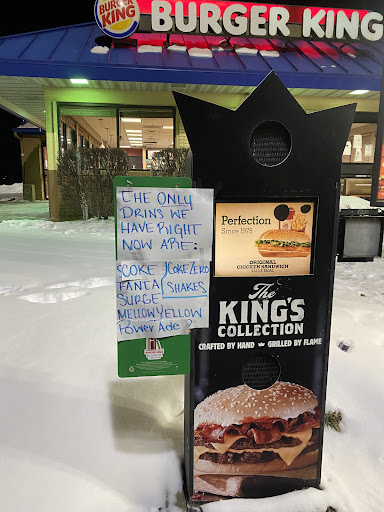 BURGER KING
BURGER KING
THE ONLY
DRINS WE
HAVE RIGHT
NOW ARE:
COKE / COKE/ZERO
FANTA / SHAKES
SURGE
MELLOW YELLOW
Power Ade
Perfection
Since 1978
ORIGINAL
CHICKEN SANDWICH
The
KING'S
COLLECTION
CRAFTED BY HAND GRILLED BY FLAME